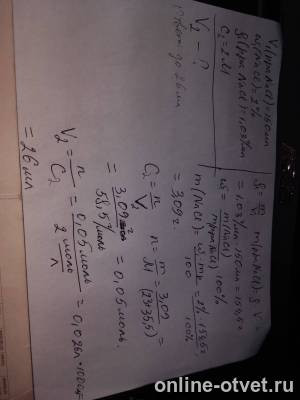 V₁(р-ра NaCl)=150мл
ω(NaCl)=2%
ρ(р-ра NaCl)=1,03г/мл
C₂=2М
V₂ - ?
до 26мл
ρ = m/V m(р-ра NaCl) = ρ·V =
= 1,03г/мл·150мл = 154,5г
100%
m(NaCl) = = 2%·154,5г/100%
= 3,09г
C₂ = n/V n = m/M = 3,09/(23+35,5) =
= 3,09/58,5 г/моль = 0,05 моль.
V₂ = n/C₂ = 0,05моль/2 моль/л = 0,026л·1000
= 26мл
online-otvet.ru